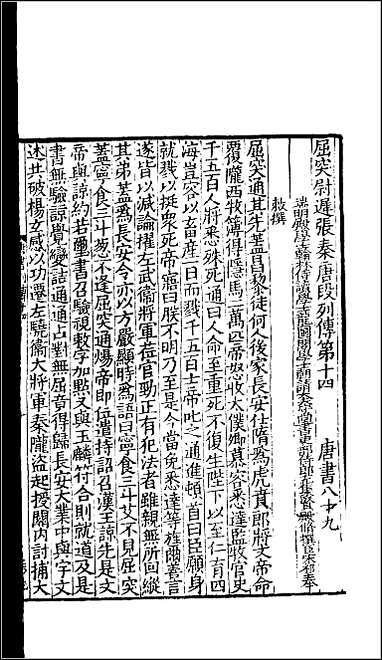 屈突尉遲張秦唐段列傳第十四　唐書八十九
端明殿學士兼翰林侍讀學士龍圖閣學士朝請大夫守尚書吏部侍郎充集賢殿脩撰臣宋祁奉
敕撰
屈突通其先蓋昌黎徒何人後家長安仕隋爲虎賁郎將文帝命
覆隴西牧簿得隱馬二萬匹帝怒收太僕卿慕容悉達監牧官史
千五百人將悉殊死通曰人命至重死不復生陛下以至仁育四
海豈容以畜産一日而戮千五百士帝叱之通進頓首曰臣願身
就戮以挺衆死帝寤曰朕不明乃至是今當免悉達等旌爾善言
遂皆以減論擢左武衞將軍莅官勁正有犯法者雖親無所回縱
其弟蓋爲長安令亦以方嚴顯時爲語曰寧食三斗艾不見屈突
蓋寧食三斗葱不逢屈突通煬帝即位遣持詔召漢王諒先是文
帝與諒約若璽書召驗視敕字加點又與玉麟符合則就道及是
書無驗諒覺變詰通通占對無屈竟得歸長安大業中與宇文
述共破楊玄感以功遷左驍衞大將軍秦隴盜起授關内討捕大